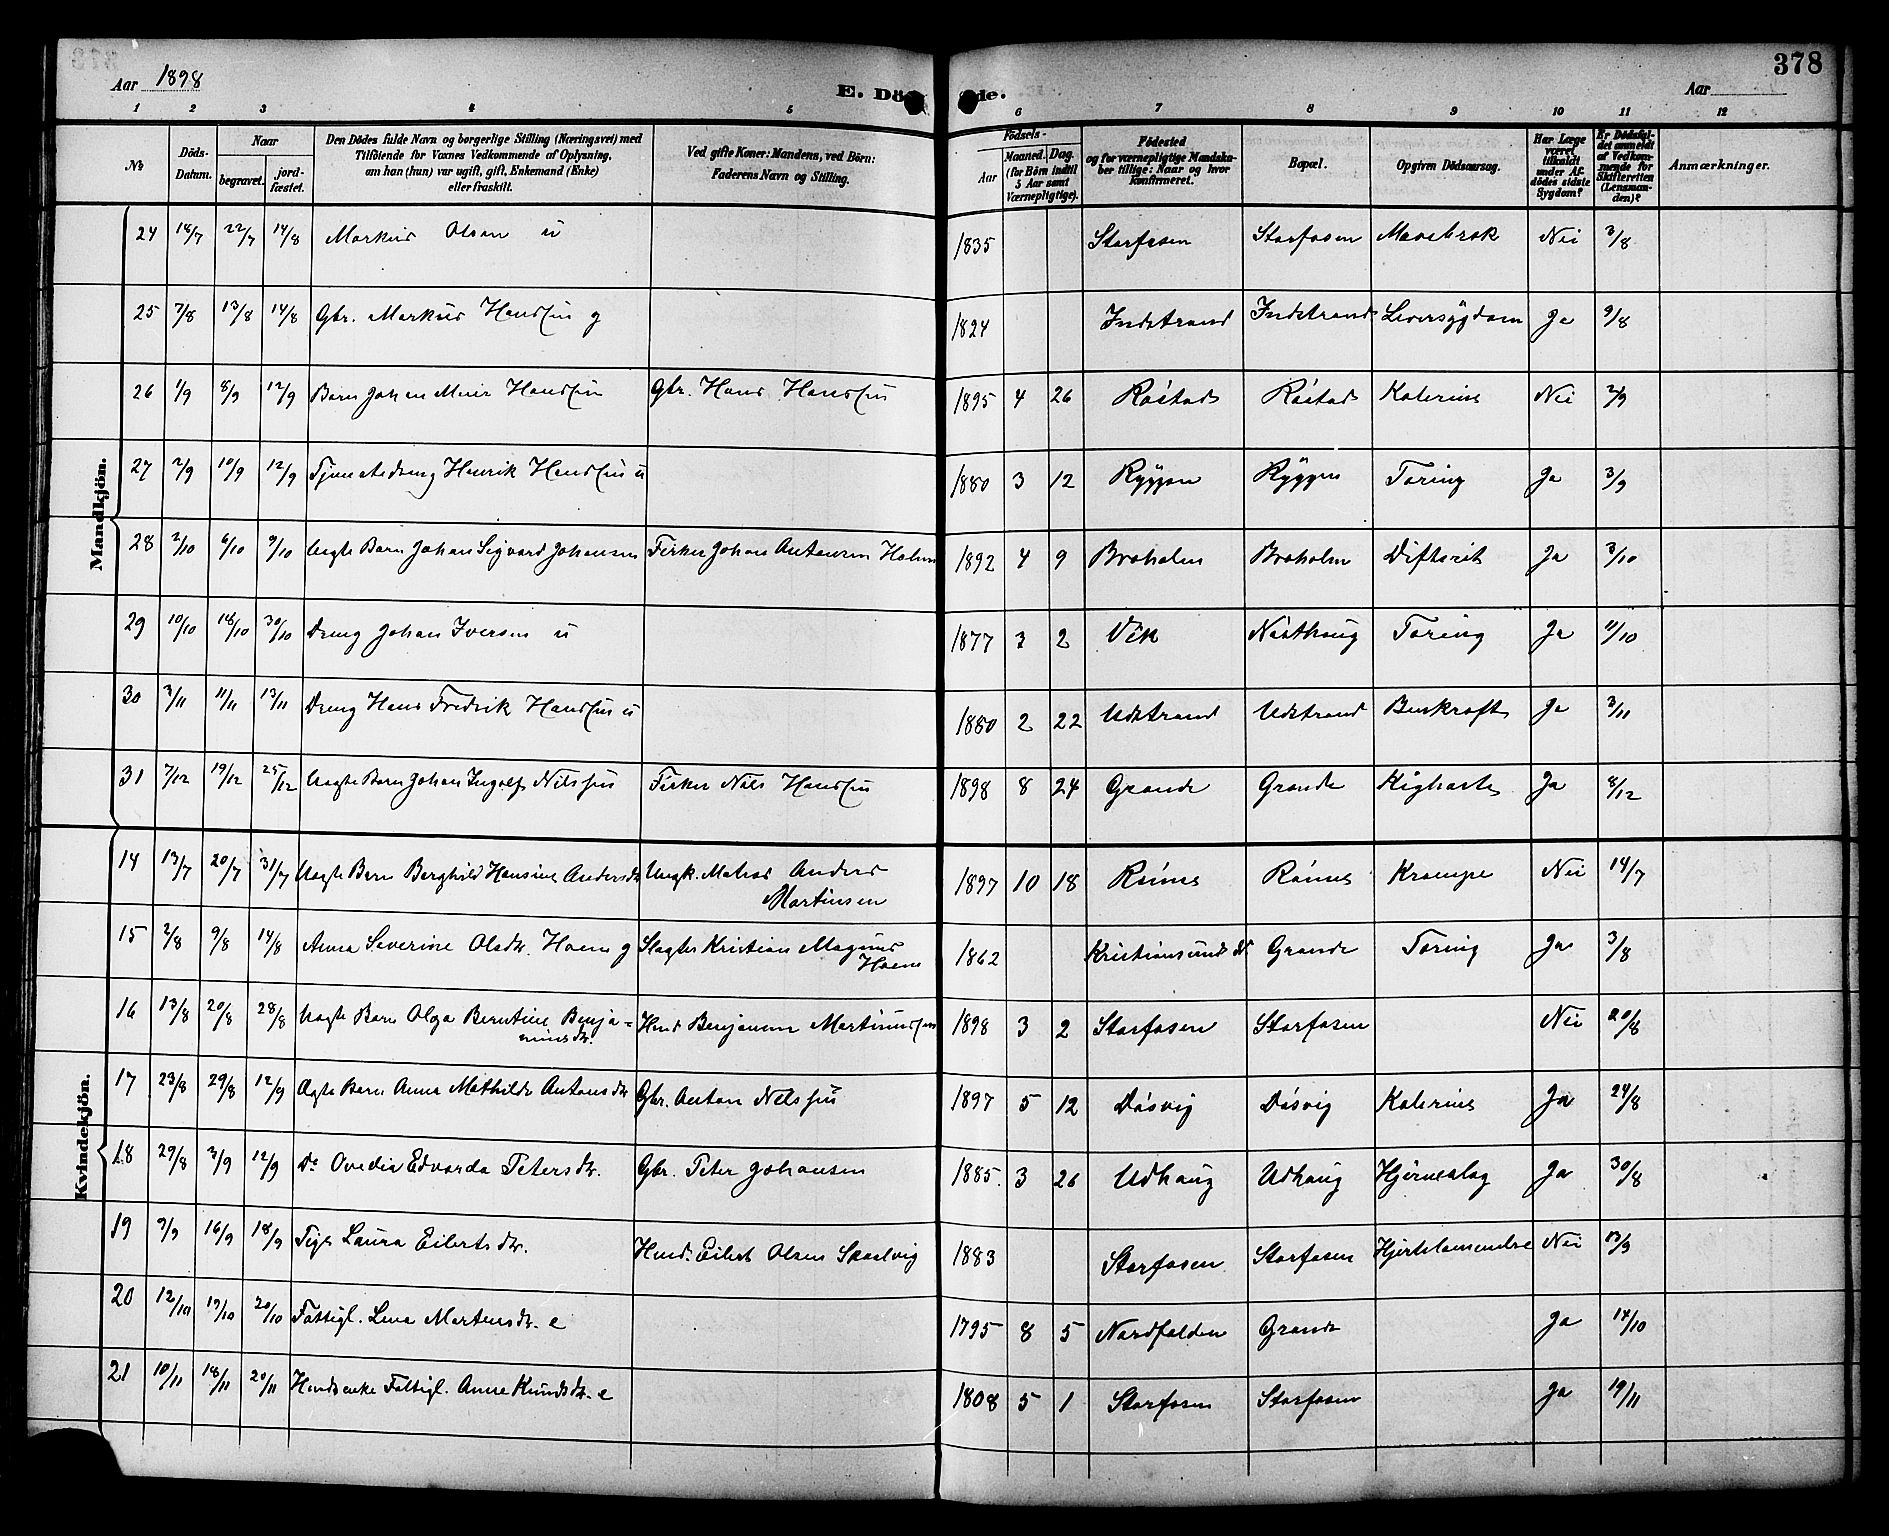 378
Aar 1898
E. Dö
de.
Aar
1 2 3 4 5 6 7 8 9 10 11 12
No
Döds-Datum.
Naar
begravet.
jord-fæstet.
Den Dödes fulde Navn og borgerlige Stilling (Næringsvei) med
Tilföiende for Voxnes Vedkommende af Oplysning,
om han (hun) var ugift, gift, Enkemand (Enke)
eller fraskilt.
Ved gifte Koner: Mandens, ved Börn:
Faderens Navn og Stilling.
Födsels-
Aar
Maaned. Dag.
(for Börn indtil
5 Aar samt
Værnepligtige).
Födested
og for værnepligtige Mandska-
ber tillige: Naar og hvor
Konfirmeret.
Bopæl.
Opgiven Dödsaarsag.
Har Læge
været
tilkaldt
under Af-
dödes sidste
Sygdom?
Er Dödsfal-
det anmeldt
af Vedkom-
mende for
Skifteretten
(Lensman-
den)?
Anmærkninger.
Mandkjön.
24 18/7 22/7 14/8 Markus Olsen u 1835 Storfosen Storfosen Mavebrok Nei 3/8
25 7/8 13/8 14/8 Gbr. Markus Hansen g 1824 Indstrand Indstrand Leversygdom Ja 9/8
26 1/9 8/9 12/9 Barn Johan Meier Hansen Gbr. Hans Hansen 1895 4 26 Röstad Röstad Kolerine Nei 2/9
27 2/9 10/9 12/9 Tjenestedreng Henrik Hansen u 1880 3 12 Ryggen Ryggen Tæring Ja 3/9
28 2/10 6/10 9/10 Uægte Barn Johan Sigvard Johansen Fisker Johan Antonsen Holm 1892 4 9 Broholm Broholm Difterit Ja 3/10
29 10/10 18/10 30/10 Dreng Johan Iversen u 1877 3 2 Vik Næsthaug Tæring Ja 11/10
30 3/11 11/11 13/11 Dreng Hans Fredrik Hansen u 1880 2 22 Udstrand Udstrand Benkræft Ja 3/11
31 7/12 19/12 25/12 Uægte Barn Johan Ingolf Nilssen Fisker Nils Hansen 1898 8 24 Grande Grande Kighoste Ja 8/12
Kvindekjön.
14 13/7 20/7 31/7 Uægte Barn Borghild Hansine Andersdtr. Ungk. Matros Anders
Martinsen 1897 10 18 Rönne Rönne Krampe Nei 14/7
15 2/8 9/8 14/8 Anna Severine Olsdtr. Hoem g Slagter Kristian Magnus
Hoem 1862 Kristiansund N. Grande Tæring Ja 3/8
16 13/8 20/8 28/8 Uægte Barn Olga Berntine Benja-
minsdtr. Hmd Benjamin Martinussen 1898 3 2 Storfosen Storfosen Nei 20/8
17 23/8 29/8 12/9 Ægte Barn Anna Mathilde Antonsdtr Gbr. Anton Nelssen 1897 5 12 Døsvig Døsvig Kolerine Ja 24/8
18 29/8 3/9 12/9 Do Ovedia Edvarda Petersdtr. Gbr. Peter Johansen 1885. 3 26 Udhaug Udhaug Hjerneslag Ja 30/8
19 9/9 16/9 18/9 Pige Laura Eilertsdtr. Hmd. Eilert Olsen Skaelvig 1883 Storfosen Storfosen Hjertelammelse Nei 13/9
20 12/10 19/10 20/10 Fattigl. Lena Mortensdtr. e 1795 8 5 Nordfolden Grande Ja 14/10
21 10/11 18/11 20/11 Husmdsenke Fattigl. Anne Knudsdtr. e 1808 5 1 Storfosen Storfosen Ja 19/11